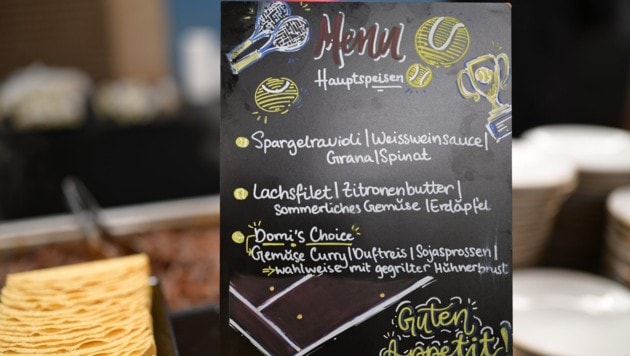 Menu
Hauptspeisen
Spargelravioli | Weissweinsauce |
Grana | Spinat
Lachsfilet | Zitronenbutter |
sommerliches Gemüse | Erdäpfel
Domi's Choice
Gemüse Curry | Duftreis | Sojasprossen |
⇒ wahlweise mit gegrilter Hühnerbrust
Guten
Appetit!